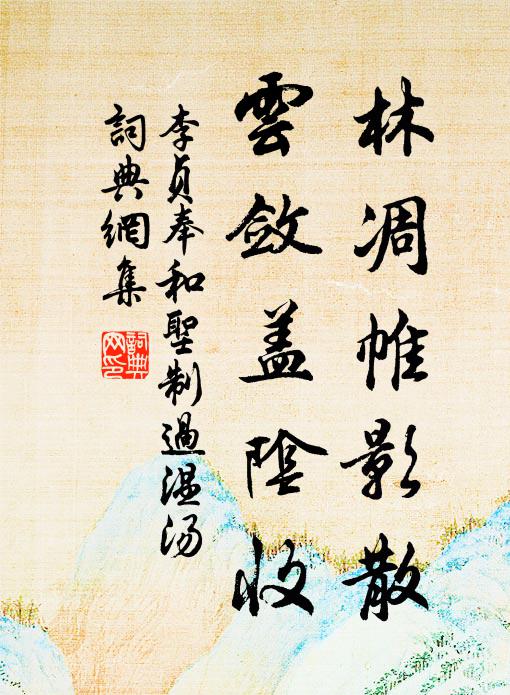 林凋帷影散
雲斂蓋陰收
李貞奉和聖制過温汤
詞典網集
詞典
网印